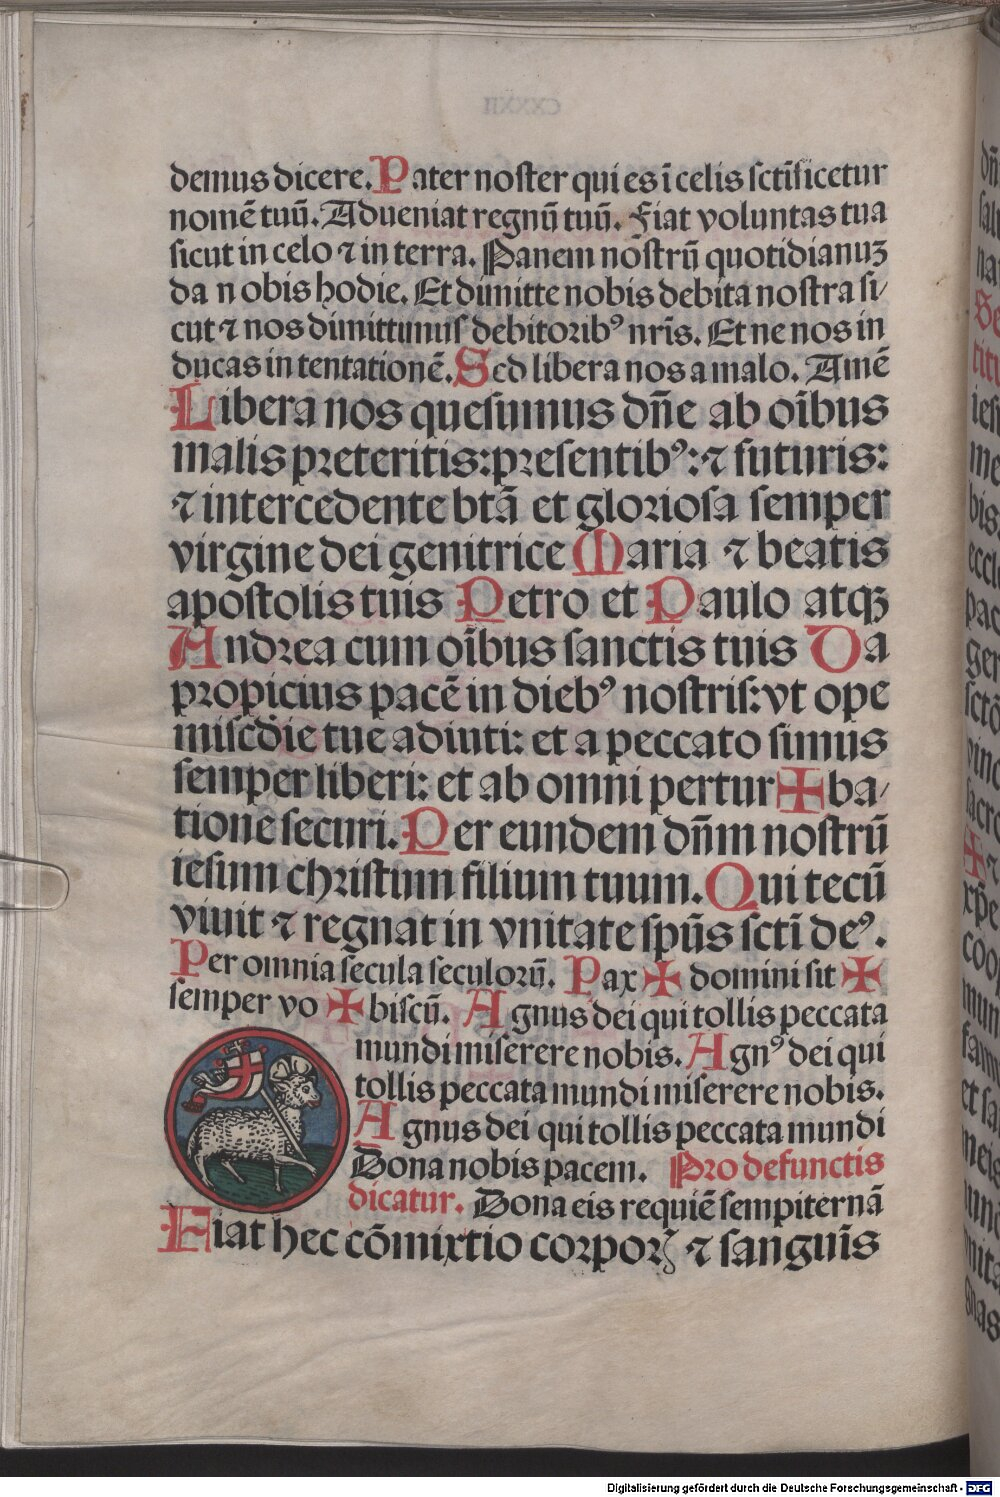 demus dicere. Pater noster qui es ī celis sctīficetur
nomē tuū. Adueniat regnū tuū. Fiat voluntas tua
sicut in celo ⁊ in terra. Panem nostrū quotidianuꝫ
da nobis hodie. Et dimitte nobis debita nostra si/
cut ⁊ nos dimittimus debitoribꝰ nr̄is. Et ne nos in
ducas in tentationē. Sed libera nos a malo. Amē
Libera nos quesumus dn̄e ab oībus
malis preteritis: presentibꝰ: ⁊ futuris:
⁊ intercedente btā et gloriosa semper
virgine dei genitrice Maria ⁊ beatis
apostolis tuis Petro et Paulo atqꝫ
Andrea cum oībus sanctis tuis Da
propicius pacē in diebꝰ nostris: vt ope
miscdīe tue adiuti: et a peccato simus
semper liberi: et ab omni pertur ✠ ba/
tione securi. Per eundem dn̄m nostrū
iesum christum filium tuum. Qui tecū
viuit ⁊ regnat in vnitate spūs sctī deꝰ.
Per omnia secula seculorū. Pax ✠ domini sit ✠
semper vo ✠ biscū. Agnus dei qui tollis peccata
mundi miserere nobis. Agnꝰ dei qui
tollis peccata mundi miserere nobis.
Agnus dei qui tollis peccata mundi
Dona nobis pacem. Pro defunctis
dicatur. Dona eis requiē sempiternā
Fiat hec cōmixtio corporꝭ ⁊ sanguīs
Digitalisierung gefördert durch die Deutsche Forschungsgemeinschaft - DFG